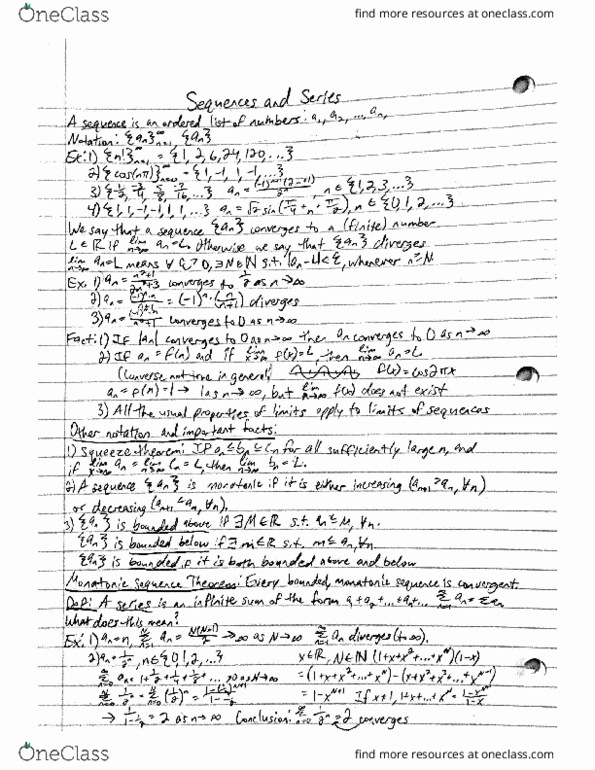 OneClass
find more resources at oneclass.com
Sequences and Series
A sequence is an ordered list of numbers: a₁, a₂, ..., aₙ,
Notation: {aₙ}ₙ₌₁^∞, {aₙ}
Ex: 1) {n!}ₙ₌₁^∞ = {1, 2, 6, 24, 120, ...}
2) {cos(nπ)}ₙ₌₀^∞ = {1, -1, 1, -1, ...}
3) {½, -3/4, 5/8, -7/16, ...} n ∈ {1, 2, 3, ...}
4) {1, 1, -1, -1, 1, 1, ...} aₙ = √2 sin(π/4 + n·π/2), n ∈ {0, 1, 2, ...}
We say that a sequence {aₙ} converges to a (finite) number
L ∈ ℝ if lim n→∞ aₙ = L. Otherwise we say that {aₙ} diverges
lim n→∞ aₙ = L means ∀ > 0, ∃ N ∈ ℕ s.t. |aₙ - L| < ε, whenever n ≥ N.
Ex. 1) aₙ = converges to ½ as n→∞
2) aₙ = = (-1)ⁿ·(n/n+1) diverges
3) aₙ = converges to 0 as n→∞
Fact: 1) If |aₙ| converges to 0 as n→∞ then aₙ converges to 0 as n→∞
2) If aₙ = f(n) and if lim x→∞ f(x) = L, then lim n→∞ aₙ = L
(Converse not true in general) f(x) = cos2πx
aₙ = f(n) = 1 → 1 as n→∞, but lim f(x) does not exist
3) All the usual properties of limits apply to limits of sequences
Other notation and important facts:
1) Squeeze theorem: If aₙ ≤ bₙ ≤ cₙ for all sufficiently large n, and
if lim aₙ = lim cₙ = L, then lim bₙ = L.
2) A sequence {aₙ} is monotonic if it is either increasing (aₙ₊₁ ≥ aₙ, ∀n)
or decreasing (aₙ₊₁ ≤ aₙ, ∀n).
3) {aₙ} is bounded above if ∃ M ∈ ℝ s.t. aₙ ≤ M, ∀n.
{aₙ} is bounded below if ∃ m ∈ ℝ s.t. m ≤ aₙ, ∀n
{aₙ} is bounded if it is both bounded above and below
Monotonic Sequence Theorem: Every bounded, monotonic sequence is convergent.
Def: A series is an infinite sum of the form a₁ + a₂ + ... + aₙ + ... Σₙ₌₁^∞ aₙ = Σaₙ
What does this mean?
Ex: 1) aₙ = n, Σₙ₌₁^N aₙ = N(N+1)/2 → ∞ as N→∞ Σₙ₌₁^∞ aₙ diverges (to ∞).
2) aₙ = 1/2ⁿ, n ∈ {0, 1, 2, ...} x ∈ ℝ, N ∈ ℕ (1+x+x²+...+x^N)(1-x)
Σₙ₌₀^∞ aₙ = 1 + ½ + ¼ + ⅛ + ... as N→∞ = (1+x+x²+...+x^N) - (x+x²+x³+...+x^N+1)
Σₙ₌₀^N 1/2ⁿ = Σₙ₌₀^N (½)ⁿ = (1-(½)^N+1)/(1-½) = 1-x^N+1 If x≠1, 1+x+...+x^N = (1-x^N+1)/(1-x)
→ 1/(1-½) = 2 as n→∞ Conclusion: Σₙ₌₀^∞ 1/2ⁿ = 2 converges
OneClass
find more resources at oneclass.com